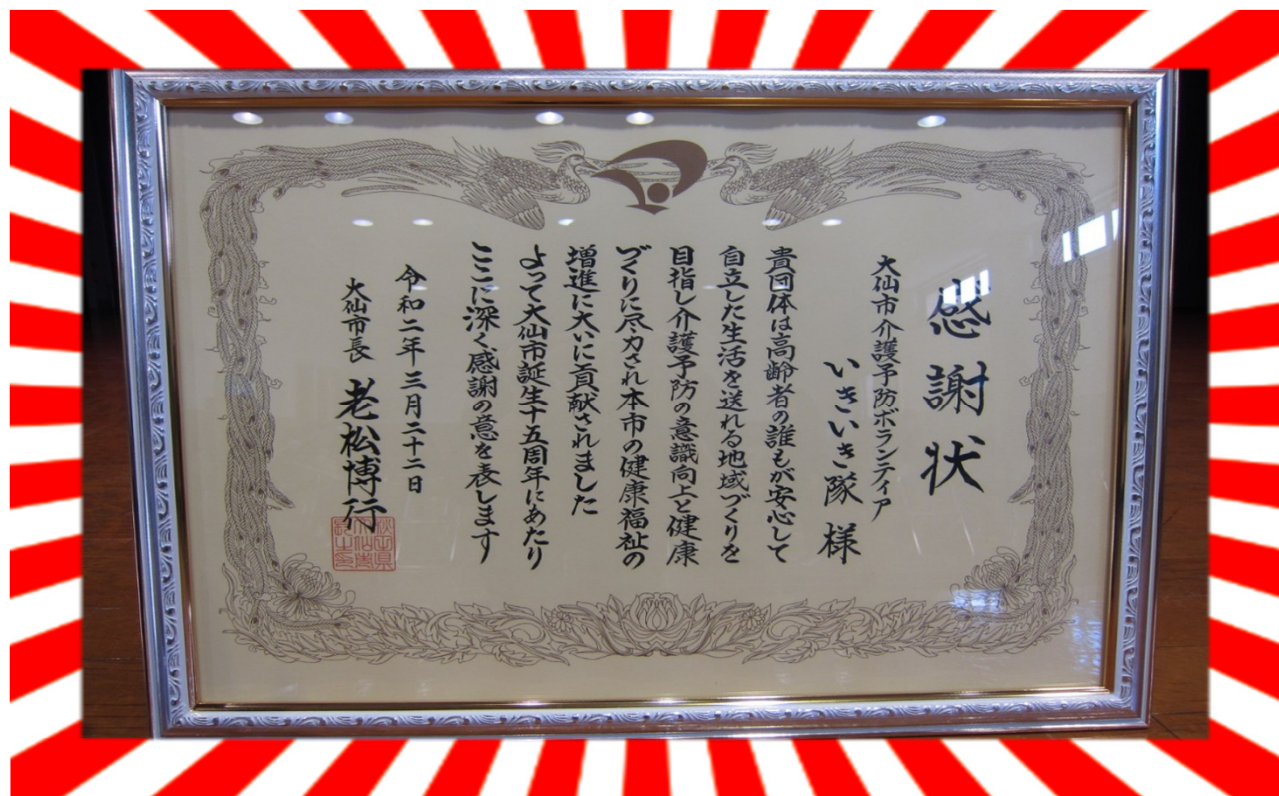 感謝状
大仙市介護予防ボランティア
いきいき隊 様
貴団体は高齢者の誰もが安心して
自立した生活を送れる地域づくりを
目指し介護予防の意識向上と健康
づくりに尽力され本市の健康福祉の
増進に大いに貢献されました
よって大仙市誕生十五周年にあたり
ここに深く感謝の意を表します
令和二年三月二十二日
大仙市長 老松博行